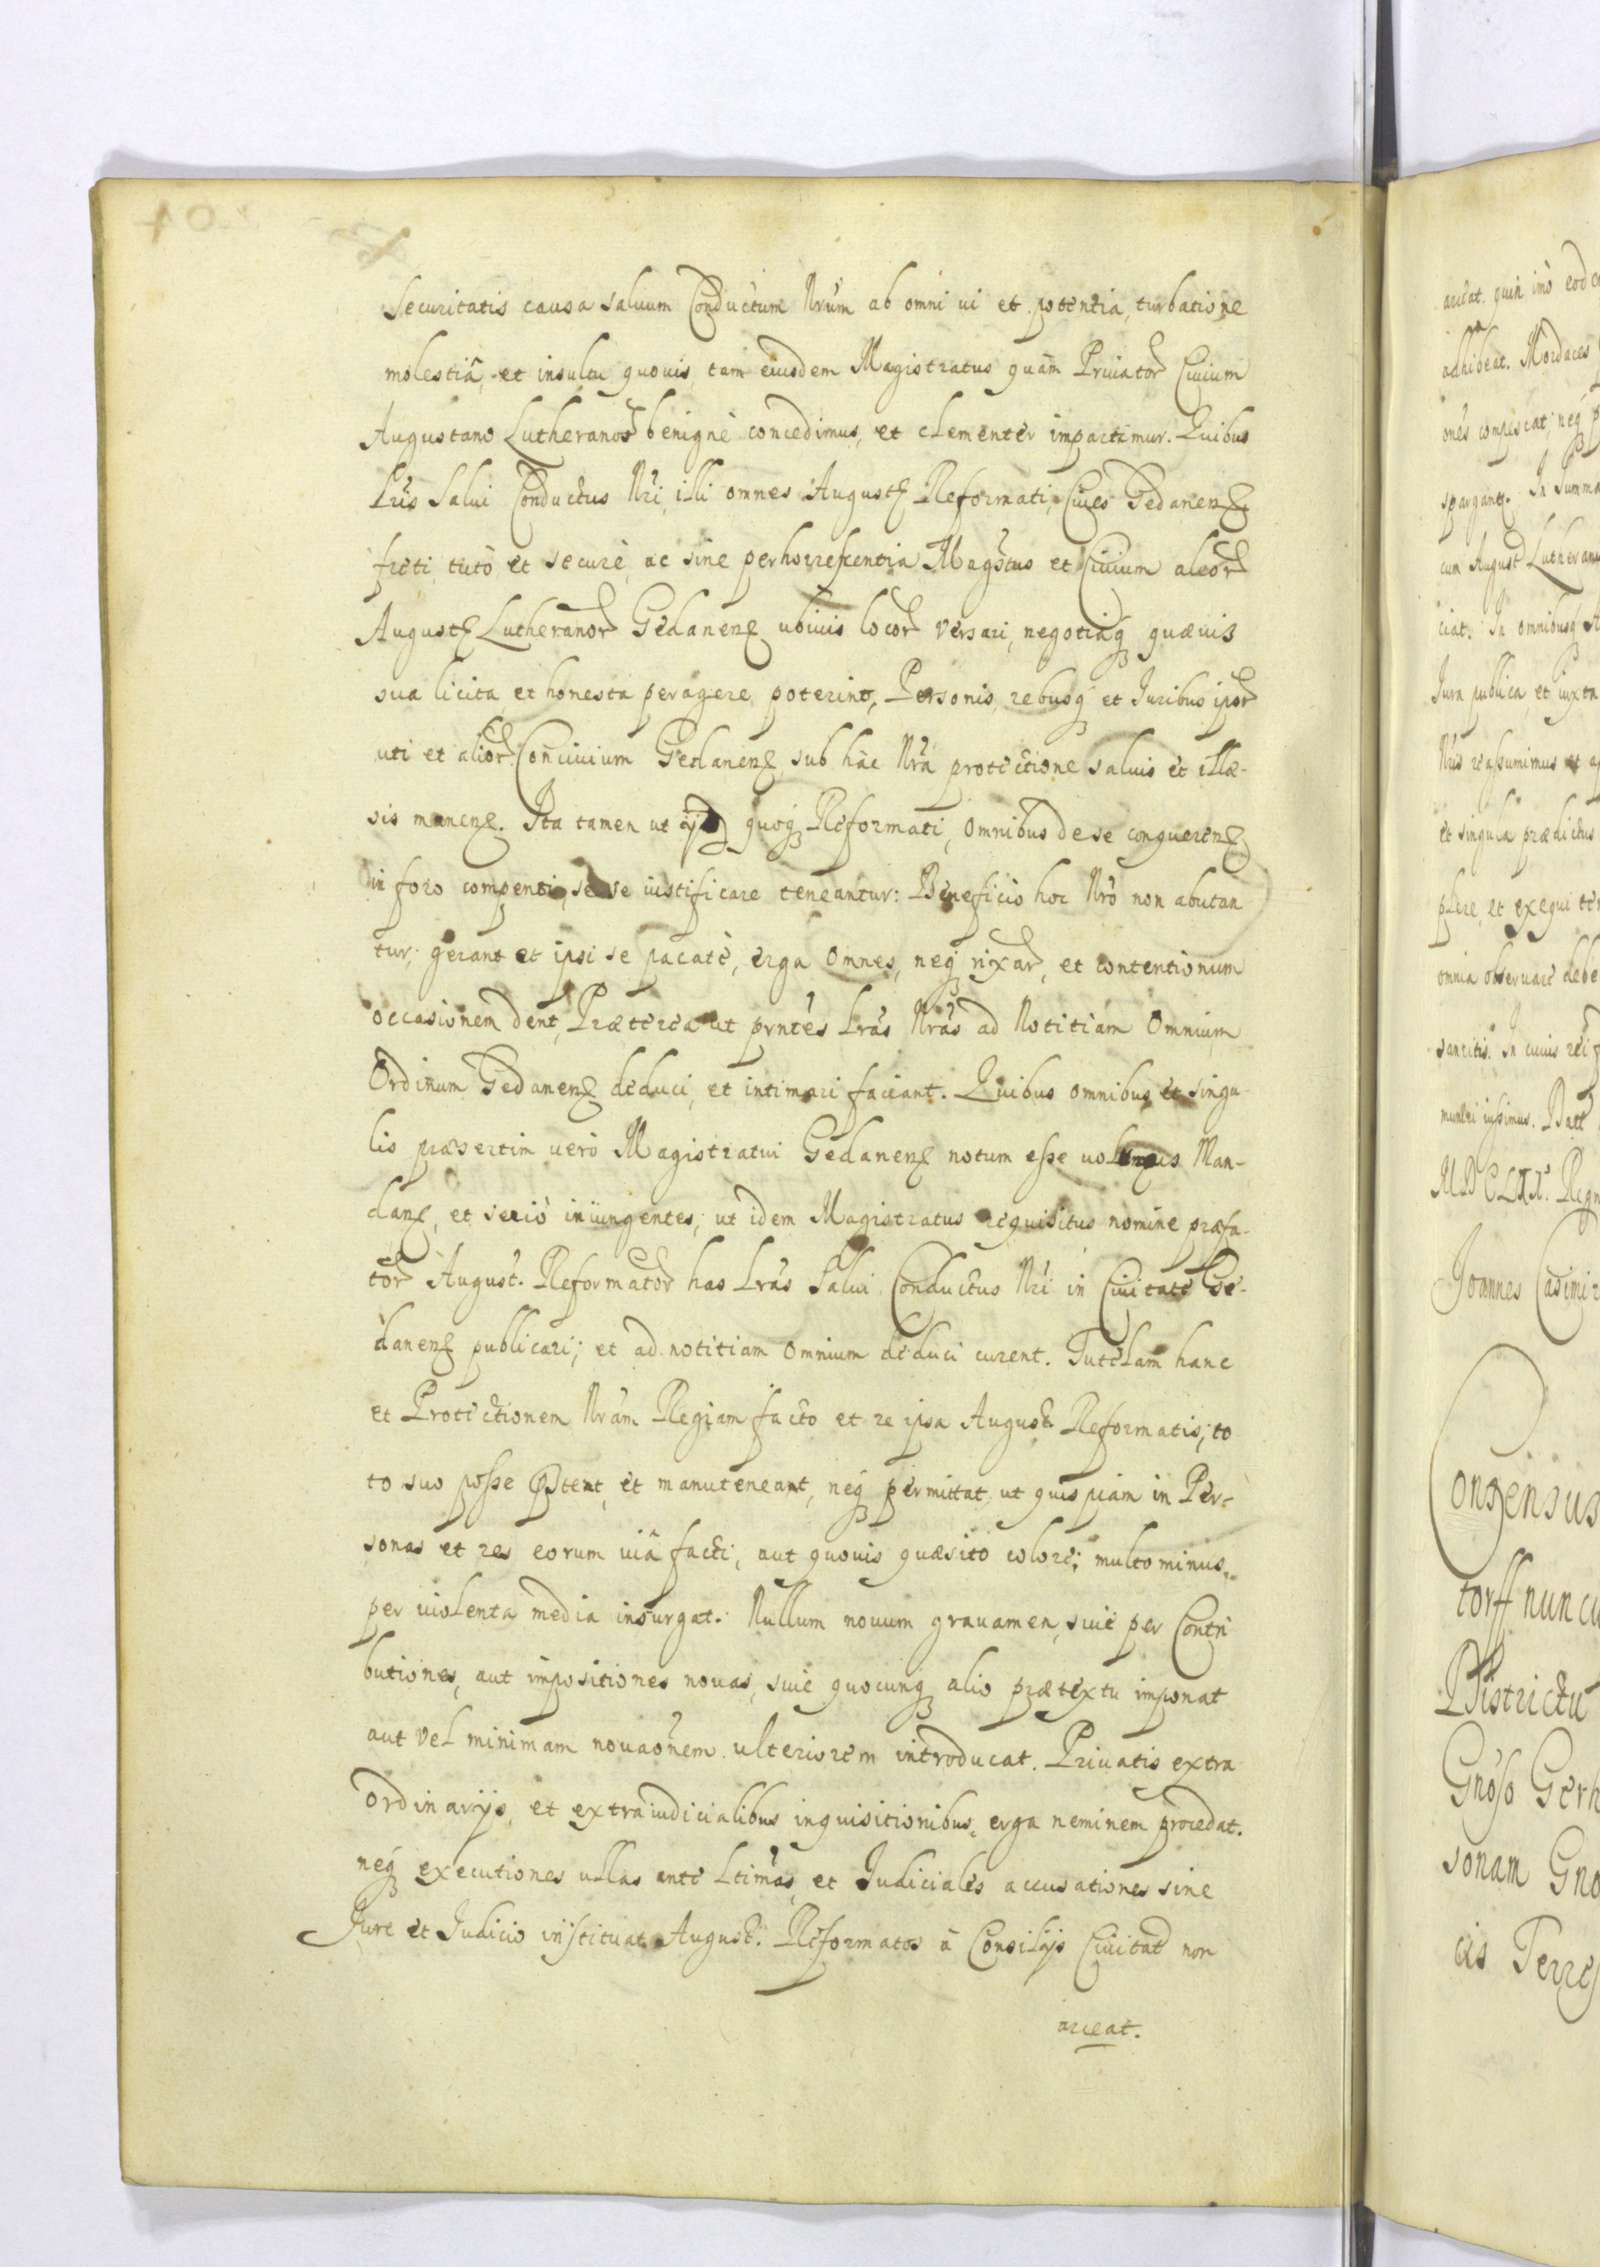 Securitatis causa salvum Conductum Nrum ab omni ui et potentia, turbatione
molestiâ, et insultu quouis, tam eiusdem Magistratus quàm Priuator Ciuium
Augustano Lutheranor benignè concedimus, et clementer impartimur. Quibus
Lris Salui Conductus Nri, illi omnes August Reformati, Ciues Gedanen
freti, tutò et securè, ac sine perhorrescentia Magstus et Ciuium alior
August Lutheranor Gedanen ubiuis locor versari, negotiaq quæuis
sua licita, et honesta peragere poterint, Personis, rebusq et Juribus ipsor
uti et alior Conciuium Gedanen, sub hac Nra protectione saluis et illæ-
sis manen. Ita tamen ut quoq Reformati, Omnibus de se conqueren
in foro compenti, se se iustificare teneantur: Beneficio hoc Nro non abutan
tur; gerant et ipsi se pacatè, erga Omnes, neq rixar, et contentionum
occasionem dent, Præterea ut pntes Lras Nras ad Notitiam Omnium
Ordinum Gedanen deduci, et intimari faciant. Quibus omnibus et singu-
lis præsertim uerò Magistratui Gedanen notum esse uolumus Man-
dan, et seriò iniungentes, ut idem Magistratus requisitus nomine præfa-
tor August. Reformator has Lras Salui Conductus Nri in Ciuitate Ge-
danen publicari; et ad notitiam Omnium deduci curent. Tutelam hanc
et Protectionem Nram Regiam facto et re ipsa August Reformatis, to
to suo posse pstent, et manuteneant, neq permittat, ut quispiam in Per-
sonas et res eorum uiâ facti, aut quouis quæsito colore; multo minus
per uiolenta media insurgat. Nullum nouum grauamen, siue per Contri
butiones, aut impositiones nouas, siue quocunq alio prætextu imponat
aut vel minimam nouaonem ulteriorem introducat. Priuatis extra
ordinarijs, et extraiudicialibus inquisitionibus, erga neminem procedat.
neq executiones ullas ante Ltimas, et Judiciales accusationes sine
Jure et Judicio instituat August. Reformatos â Consilijs Ciuitat non
arceat.
arceat. quin imò
adhibeat. Mordaces
ones compescat; neq
spargant. In summa
cum August Lutheran
ciat. In omnibusq
Jura publica, et iuxta
Nris reassumimus et
et singula prædictus
plere, et exequi
omnia obseruare debe
sancitis. In cuius rei
muniri iussimus. Datt
Regn
Joannes Casimir
Consensus
torff nuncu
Districtu
Gnoso Gerh
sonam Gno
cis Terres